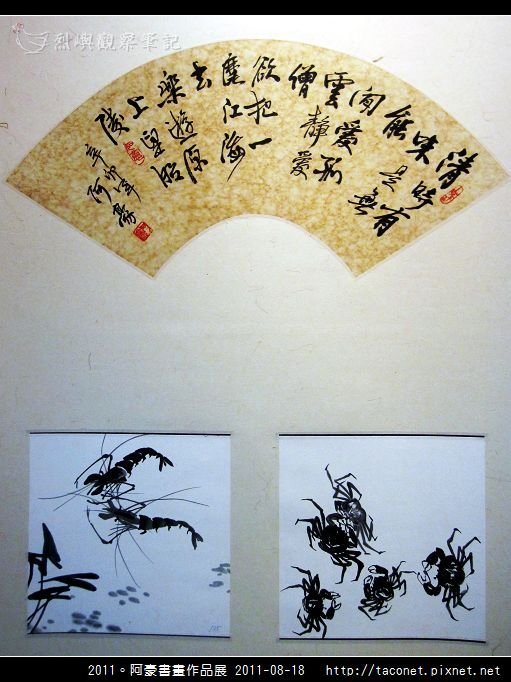 烈嶼觀察筆記
清時有
味是無
能
閒愛孤
雲靜愛
僧
欲把一
麾江海
去
樂遊原
上望昭
陵
辛卯年阿豪
2011。阿豪書畫作品展 2011-08-18 http://taconet.pixnet.net